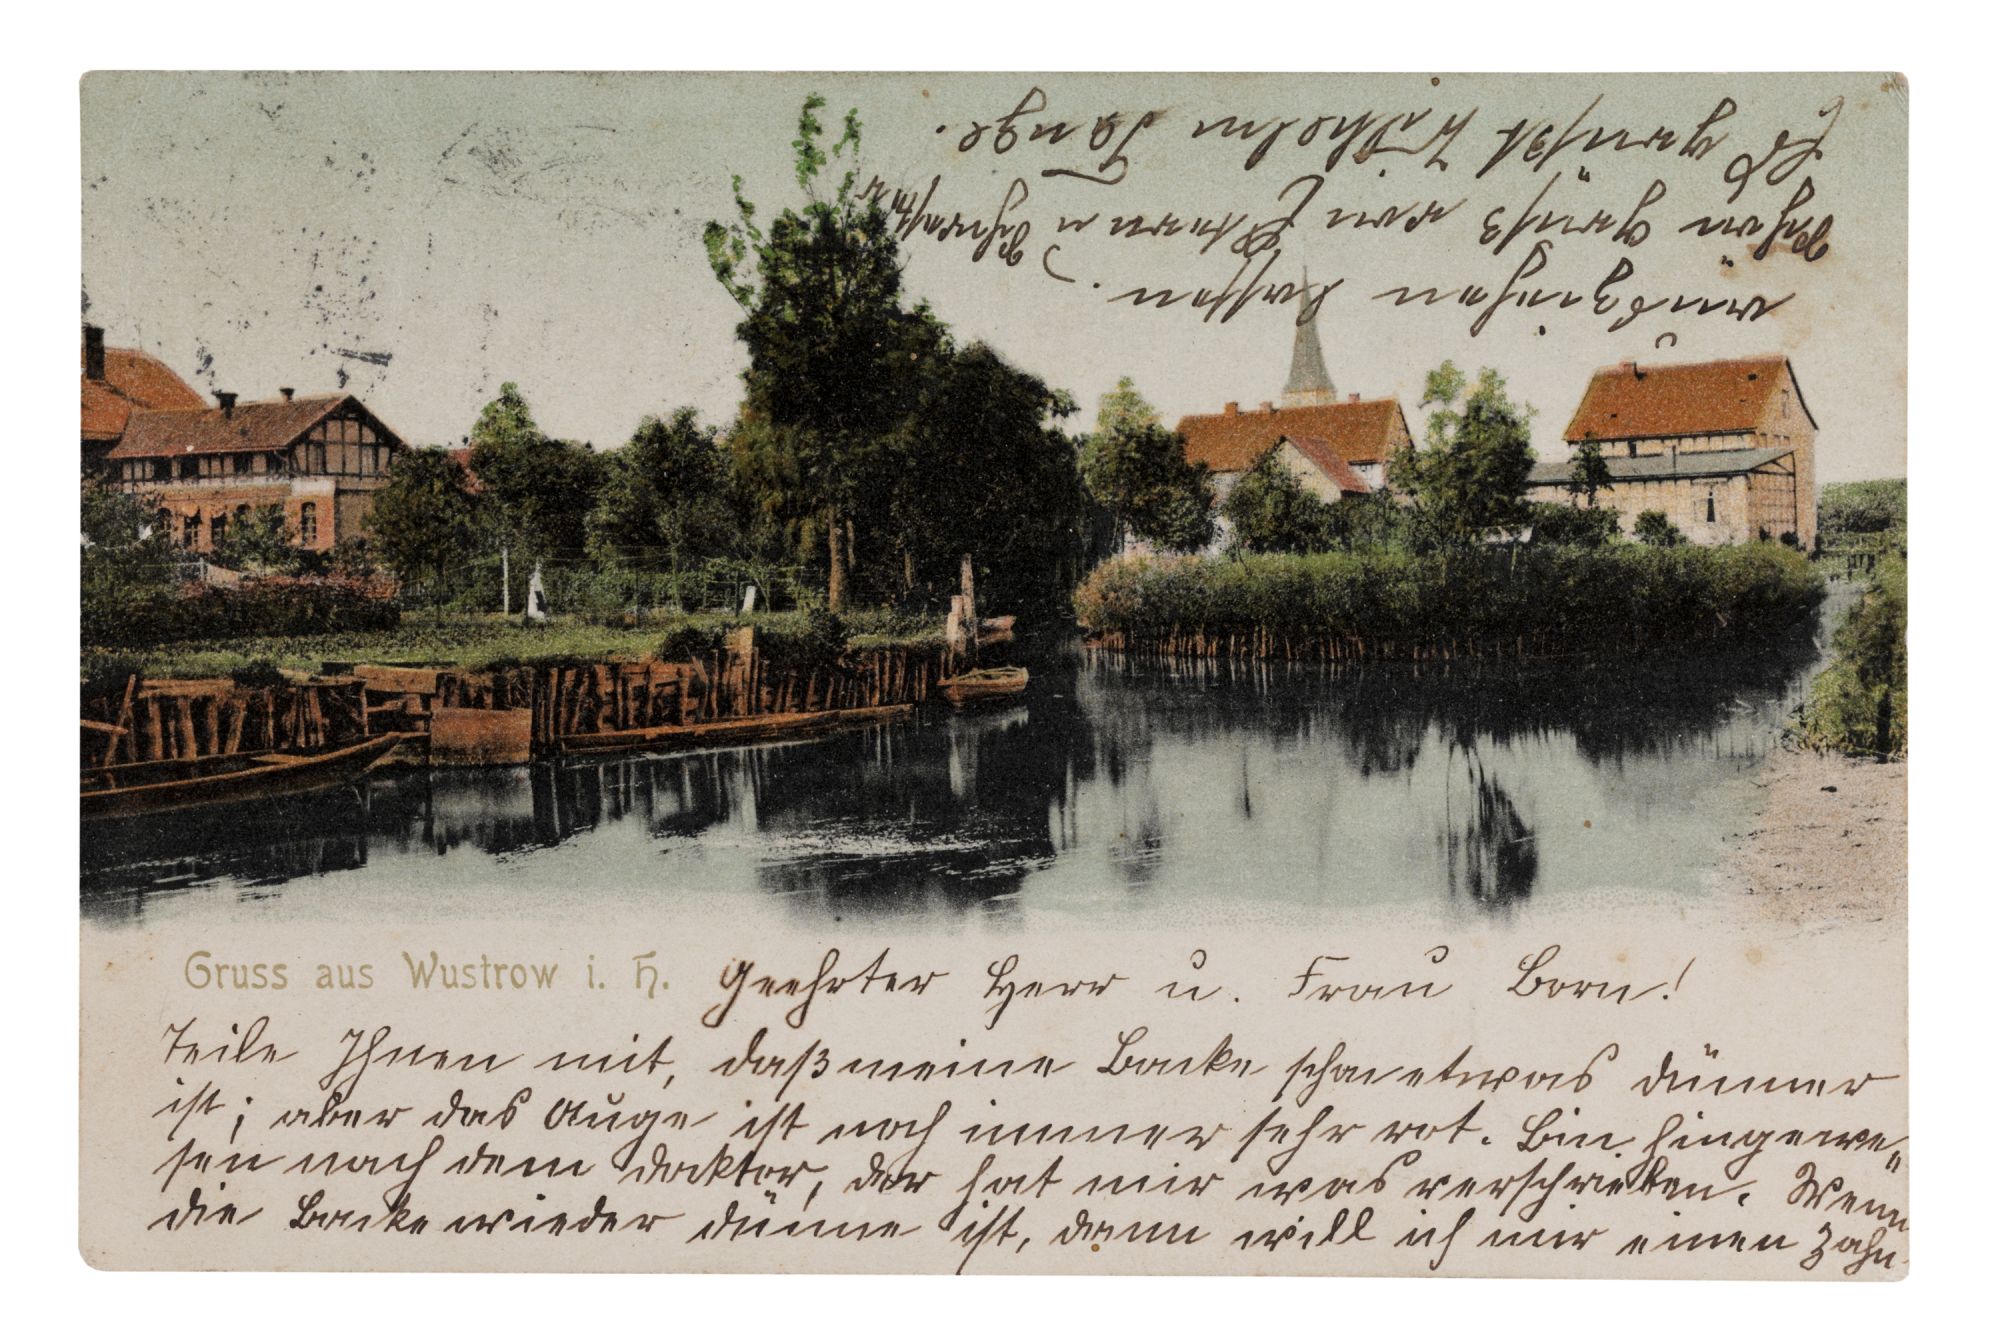 Gruss aus Wustrow i. H. Geehrter Herr u. Frau Born!
Teile Ihnen mit, daß meine Backe schon etwas dünner
ist; aber das Auge ist noch immer sehr rot. Bin hingewe-
sen nach dem Doktor, der hat mir was verschrieben. Wenn
die Backe wieder dünne ist, dann will ich mir einen Zahn
ausziehen lassen.
Schön Gruß von Eltern u Schwester
Es grüßt Wilhelm Lange.